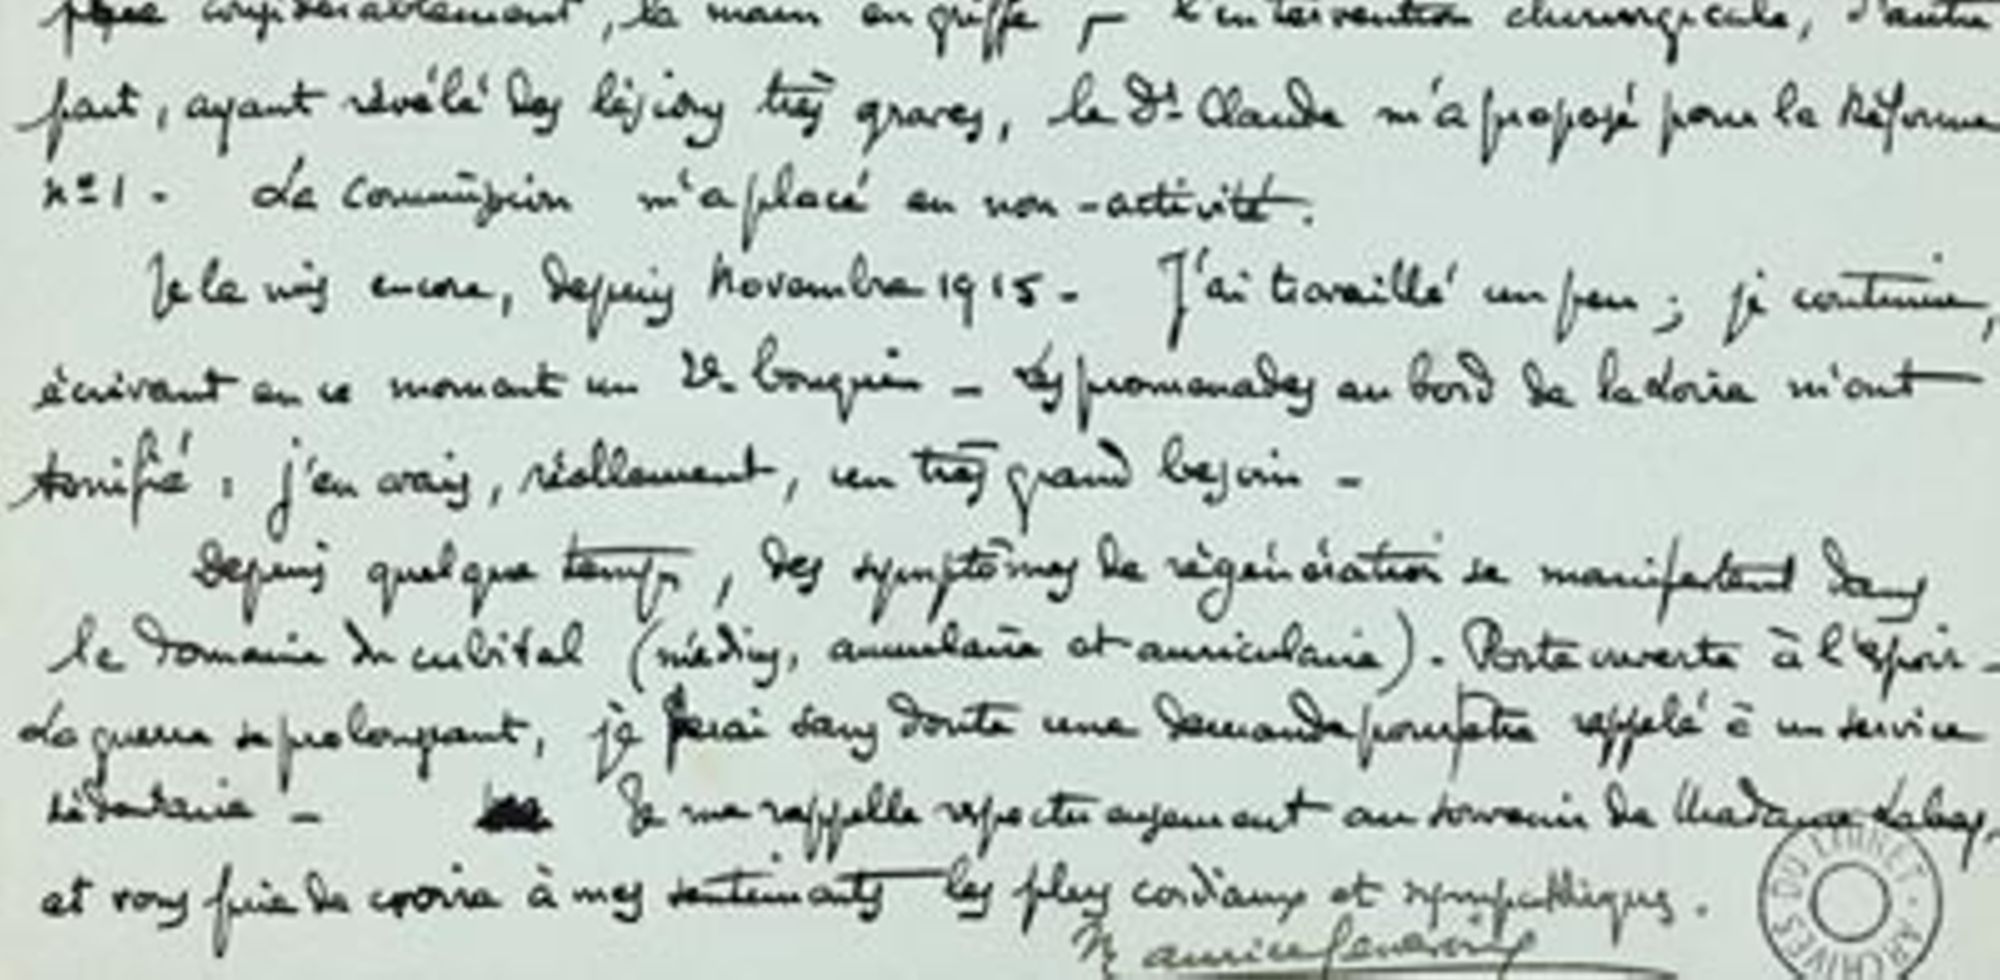 considérablement, la main en griffe — l'intervention chirurgicale, d'autre
part, ayant révélé des lésions très graves, le Dr Claude m'a proposé pour la Réforme
nº 1 - La Commission m'a placé en non-activité.
Je le suis encore, depuis Novembre 1915 - J'ai travaillé un peu ; je continue,
écrivant en ce moment un 2e bouquin - Les promenades au bord de la Loire m'ont
tonifié : j'en avais, réellement, un très grand besoin -
Depuis quelque temps, des symptômes de régénération se manifestent dans
le domaine du cubital (médius, annulaire et auriculaire). Porte ouverte à l'espoir -
La guerre se prolongeant, je ferai sans doute une demande pour être rappelé à un service
sédentaire - Je me rappelle respectueusement au souvenir de Madame
et vous prie de croire à mes sentiments les plus cordiaux et sympathiques.
Maurice Genevoix
ARCHIVES DU